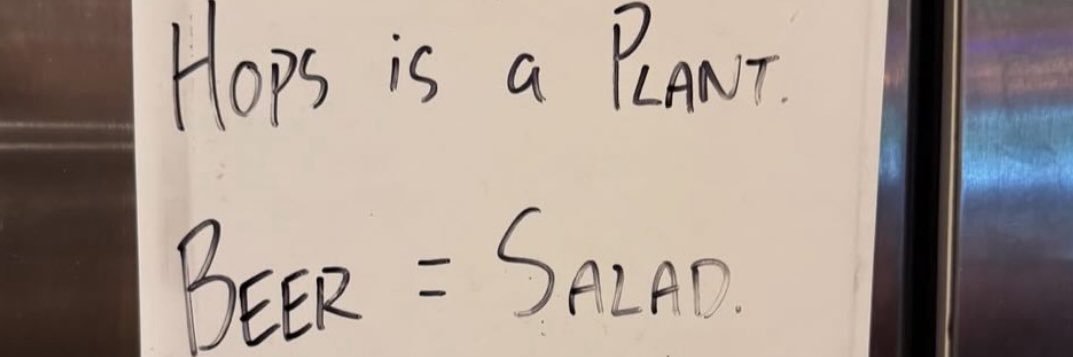 Hops is a Plant.
Beer = Salad.